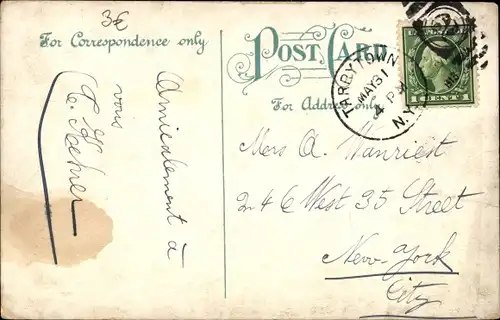 3€
For Correspondence only
POST CARD
For Address only
TARRYTOWN
MAY 31
4 P M
N.Y.
1 CENT 1
Amicalement à
vous
Mers A. Wanriest
246 West 35 Street
New-York
City